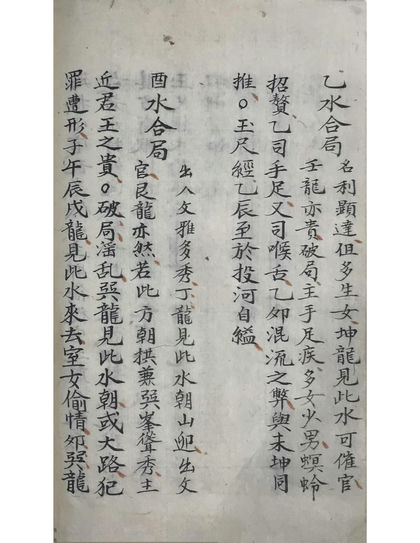 乙水合局
名利顯達但多生女坤龍見此水可催官
壬龍亦貴破局主手足疾多女少男螟蛉
招贅乙司手足又司喉舌乙夘混流之弊與未坤同
推○玉尺經乙辰至於投河自縊
酉水合局
出入文雅多秀丁龍見此水朝山迎出文
官艮龍亦然若此方朝拱兼巽峯聳秀主
近君王之貴○破局滛乱巽龍見此水朝或大路犯
罪遭形子午辰戌龍見此水來去室女偷情夘巽龍